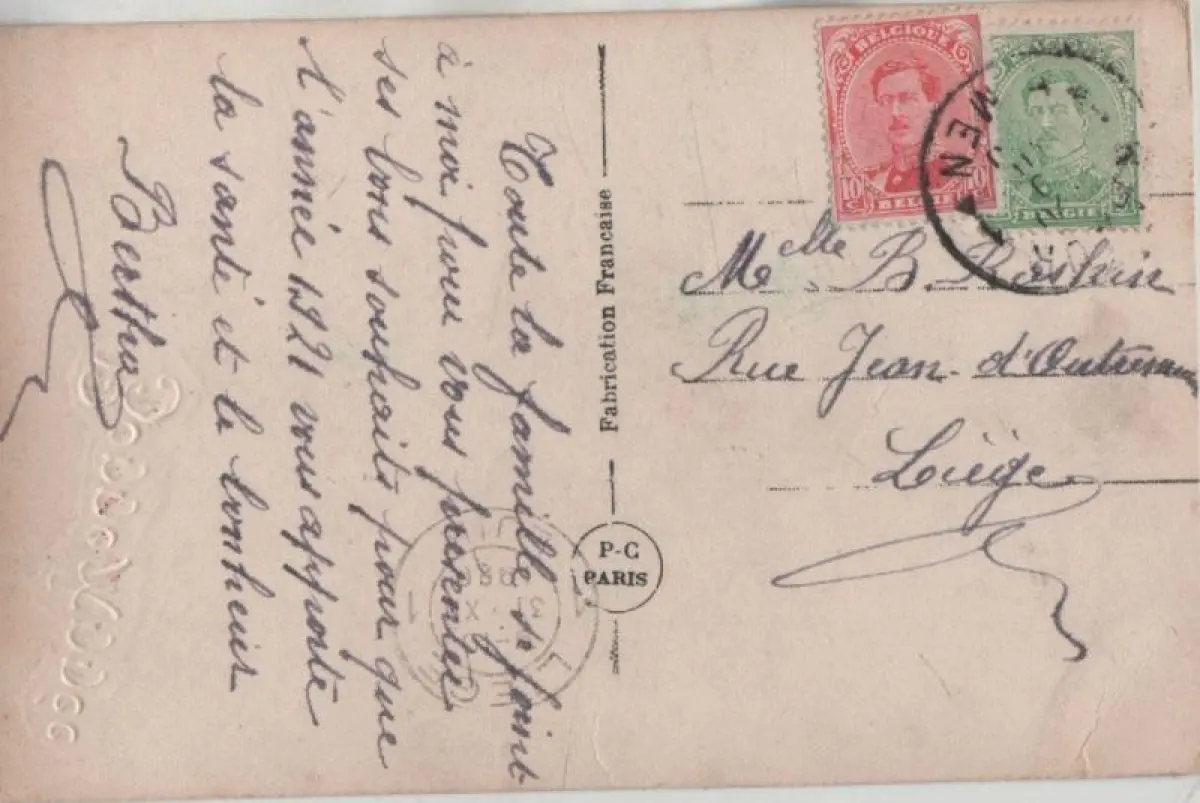 Toute la famille se joint
à moi pour vous presenter
ses bons souhaits pour que
l'année 1921 vous apporte
la santé et le bonheur
Bertha
Fabrication Francaise
P-C
PARIS
BELGIQUE
10 C 10 C
BELGIË
BELGIË
MEN
Melle. B.
Rue Jean. d'Outremeuse
Liége
Bonne Année